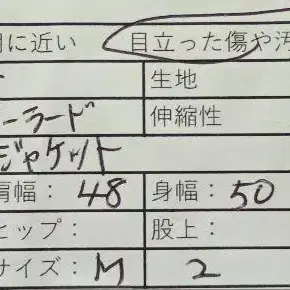 に近い 目立った傷や汚
生地
ーラード 伸縮性
ジャケット
肩幅： 48 身幅： 50
ヒップ： 股上：
サイズ： M 2